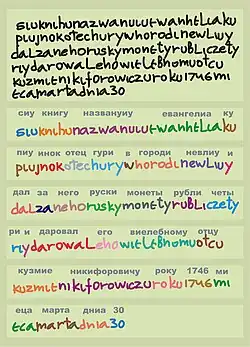 siuknihunazwanuiutwanheLiaku
piujnokotechurywhorodinewLiuy
daLzanehoruskymonetyrubLiczety
riydarowaLehowitLtBhomuotcu
kuzmitnikiforowiczuroku1746mi
tcamartadnia30
сиу книгу названуиу евангелиа ку
siuknihunazwanuiutwanheLiaku
пиу инок отец гури в городи невлиу и
piujnokotechurywhorodinewLiuy
дал за него руски монеты рубли четы
daLzanehoruskymonetyrubLiczety
ри и даровал его виелебному отцу
riydarowaLehowitLtBhomuotcu
кузмие никифоровичу року 1746 ми
kuzmitnikiforowiczuroku1746mi
еца марта дниа 30
tcamartadnia30